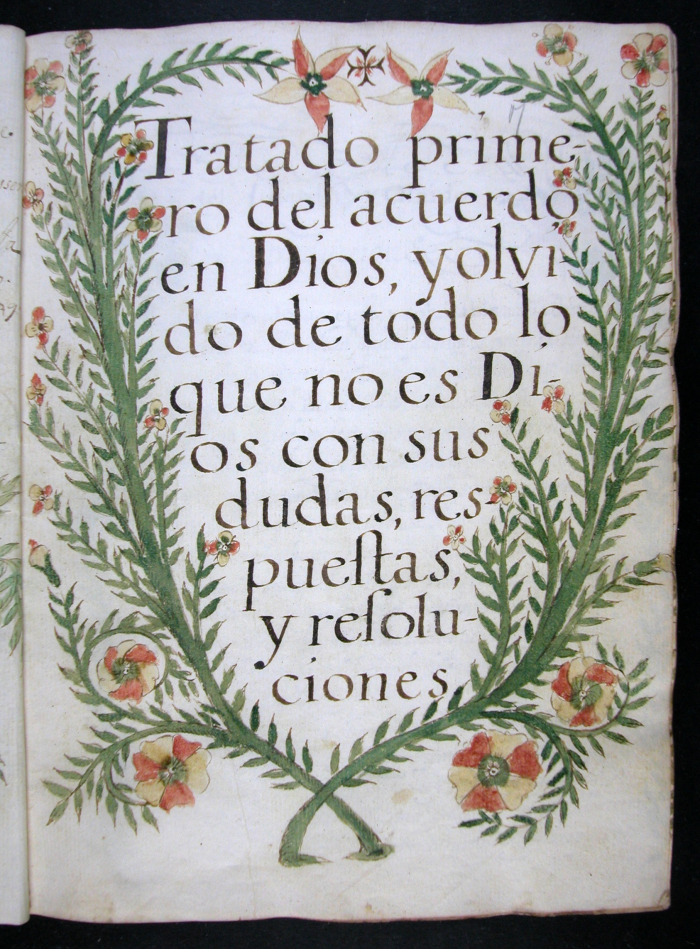 Tratado prime-
ro del acuerdo
en Dios, y olvi
do de todo lo
que no es Di-
os con sus
dudas, res-
pueſtas,
y reſolu-
ciones